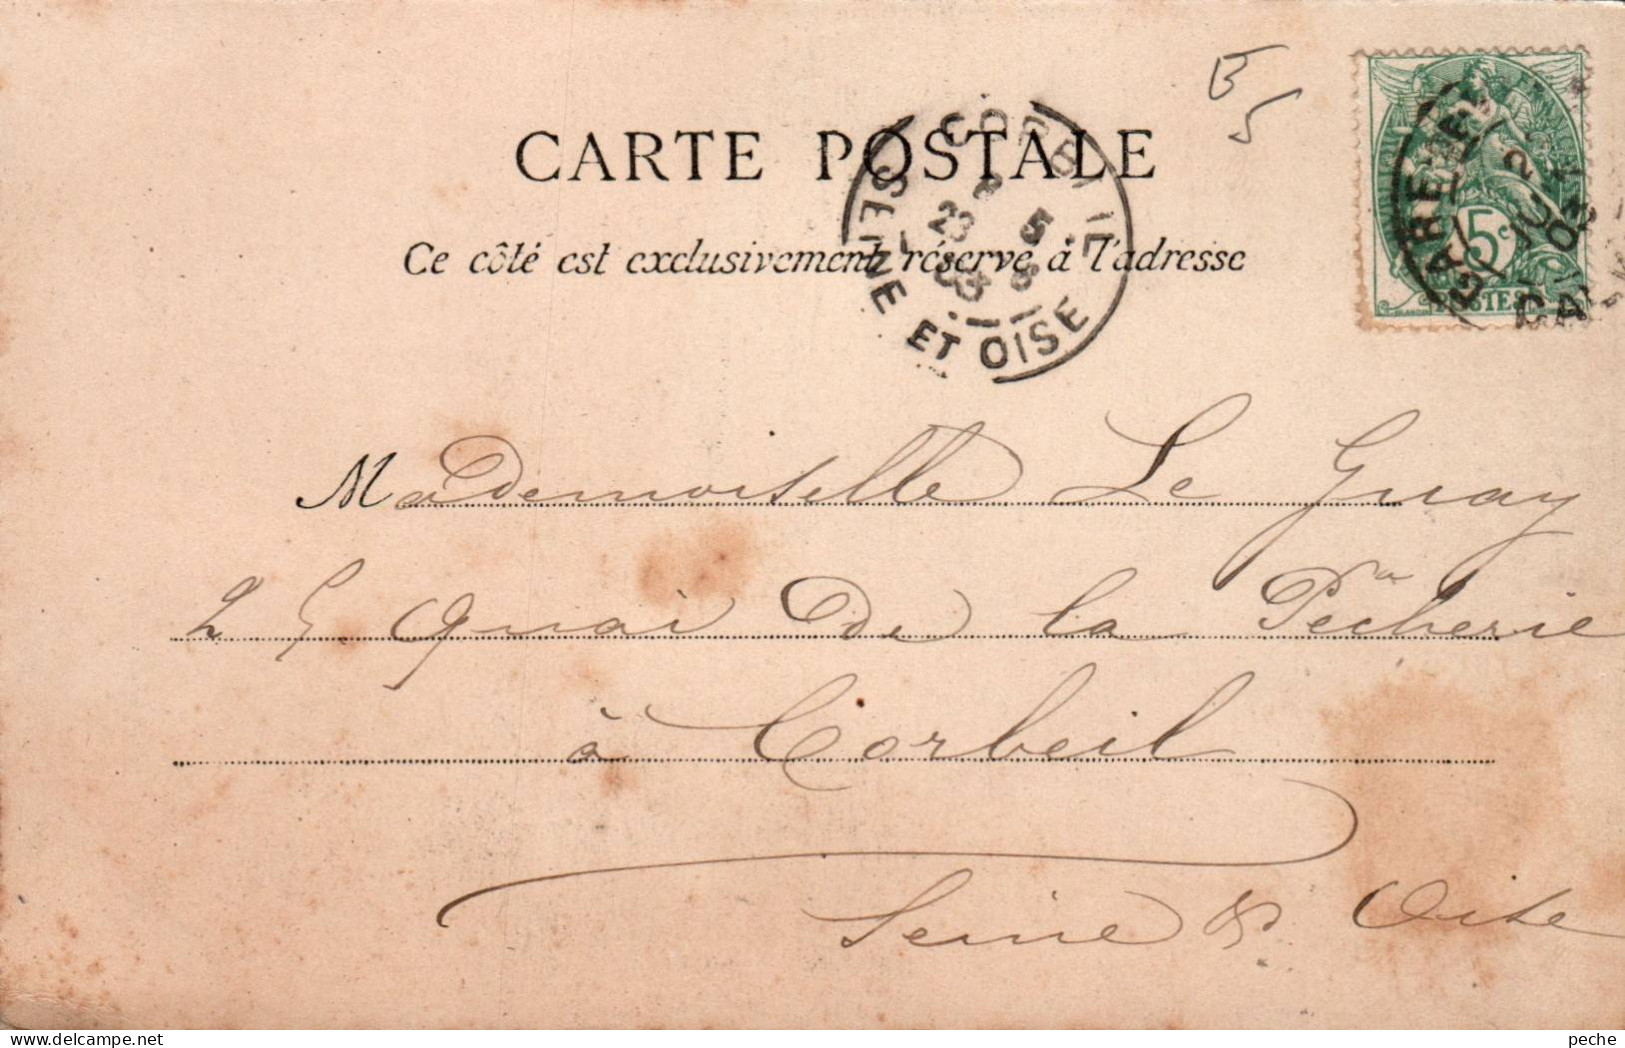 B
5
CARTE POSTALE
Ce côté est exclusivement réservé à l'adresse
CORBEIL
8
23 5
03 8
SEINE ET OISE
GARE
5c
POSTES
Mademoiselle Le Guay
25 Quai De la Pêcherie
à Corbeil
Seine & Oise
peche